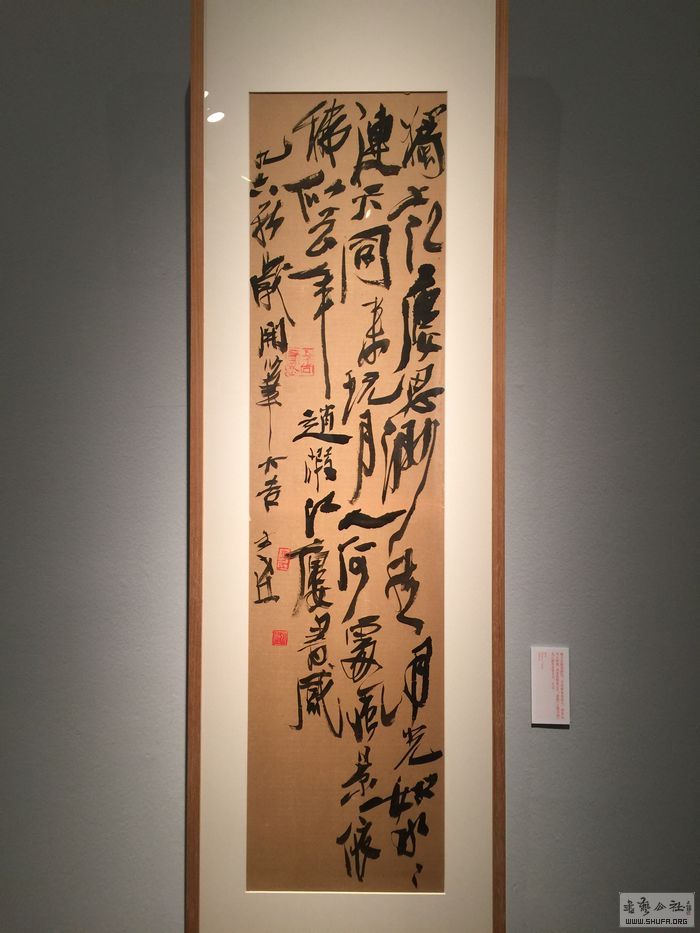 獨上江廔思渺然月光如水〻
連天同來玩月人何處風景依
稀似去年 趙嘏江廔書感
九六秋歲開筆大吉
書藝公社
WWW.SHUFA.ORG